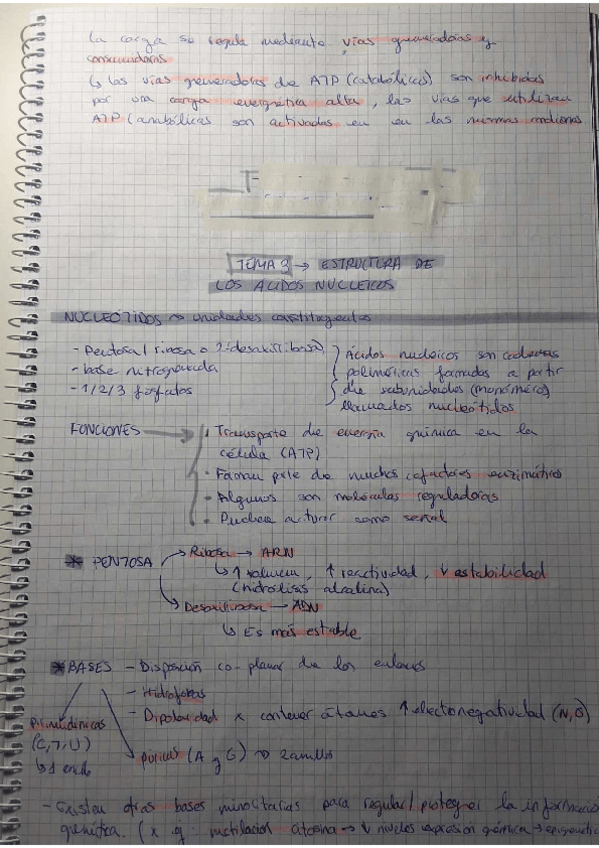 La carga se regula mediante vías generadoras y
consumidoras
↳ Las vías generadoras de ATP (catabólicas) son inhibidas
por una carga energética alta, las vías que utilizan
ATP (anabólicas son activadas en en las mismas condiciones
TEMA 3 → ESTRUCTURA DE
LOS ACIDOS NUCLEICOS
NUCLEÓTIDOS → unidades constituyentes
- Pentosa (ribosa o 2-desoxirribosa)
- base nitrogenada
- 1/2/3 fosfatos
Ácidos nucleicos son cadenas
poliméricas formadas a partir
de subunidades (monómeros)
llamados nucleótidos
FUNCIONES →
· Transporte de energía química en la
célula (ATP)
- Forman parte de muchos cofactores enzimáticos
- Algunos son moléculas reguladoras
· Pueden actuar como señal
* PENTOSA
→ Ribosa → ARN
↳ ↑ , ↑ reactividad, ↓ estabilidad
(hidrólisis alcalina)
→ Desoxirribosa → ADN
↳ Es más estable
* BASES - Disposición co-planar de los enlaces
- Hidrófobas
- Dipolaridad x contener átomos ↑ electronegatividad (N,O)
pirimidínicas
(C,T,U)
↳ 1 anillo
púricas (A y G) → 2 anillos
- Existen otras bases minoritarias para regular/proteger la informació
genética. (x ej: metilación → ↓ niveles expresión génica → epigenétic